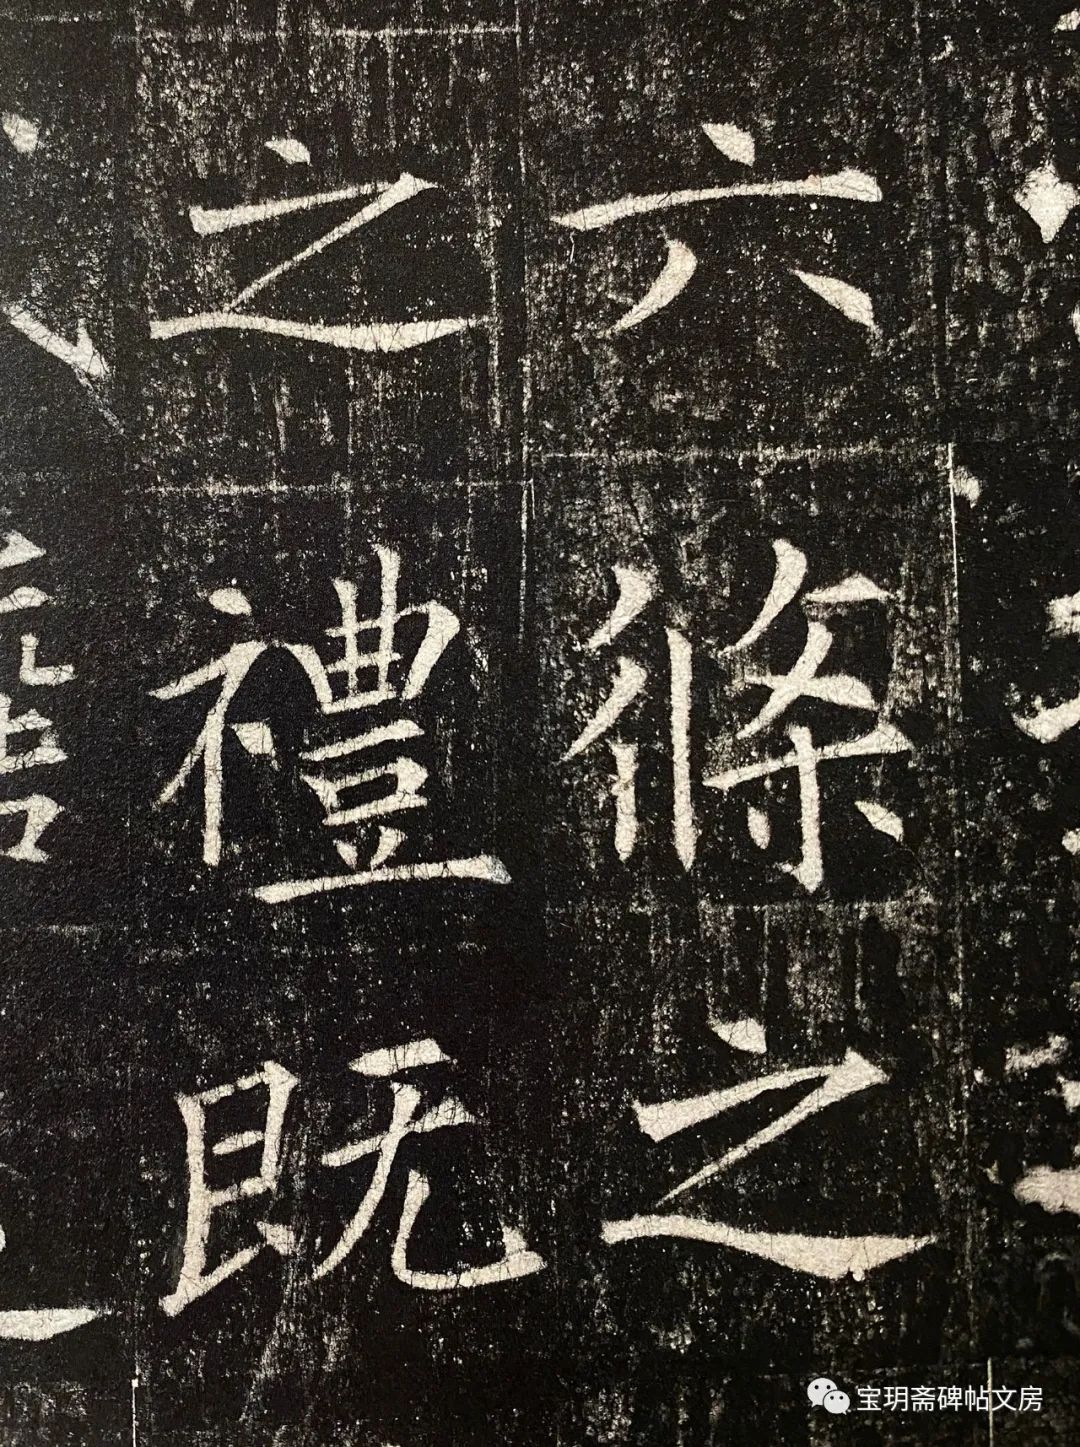 六條之
之禮既
宝玥斋碑帖文房